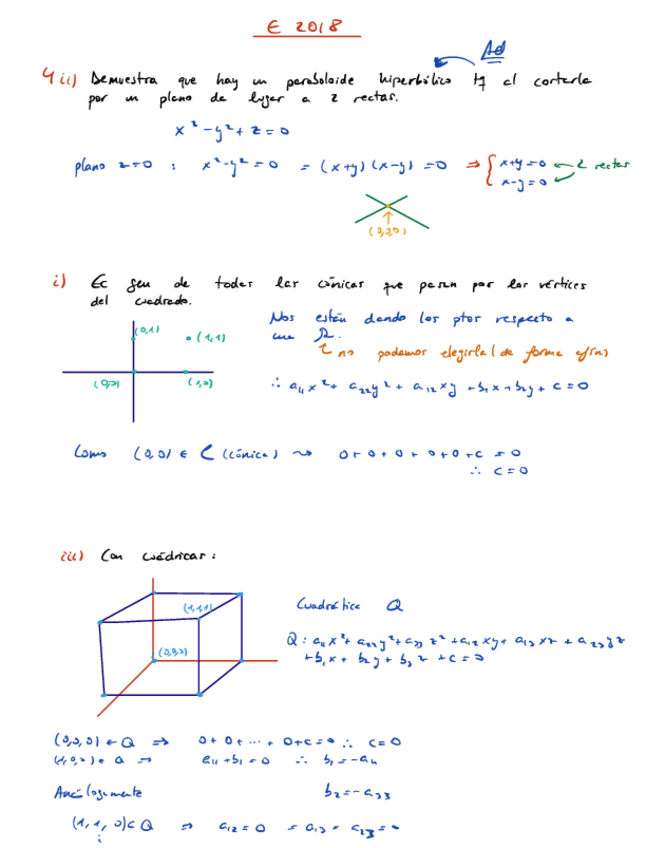 E 2018
Ad
4 ii) Demuestra que hay un paraboloide hiperbólico tq al cortarlo
por un plano da lugar a 2 rectas.
x² - y² + z = 0
plano z=0 : x² - y² = 0 = (x+y) (x-y) = 0 ⇒ { x+y=0 2 rectas
x-y=0
(0,0,0)
i) Ec gen de todas las cónicas que pasen por los vértices
del cuadrado.
Nos están dando los ptos respecto a
una R.
no podemos elegirla (de forma afín)
(0,1)
(1,1)
(0,0) (1,0)
∴ a₁₁x² + a₂₂y² + a₁₂xy + b₁x + b₂y + c = 0
Como (0,0) ∈ C (cónica) ⇝ 0 + 0 + 0 + 0 + 0 + c = 0
∴ c = 0
iii) Con cuádricas:
(1,1,1)
(0,0,0)
Cuadrática Q
Q: a₁₁x² + a₂₂y² + a₃₃z² + a₁₂xy + a₁₃xz + a₂₃yz
+ b₁x + b₂y + b₃z + c = 0
(0,0,0) ∈ Q ⇒ 0 + 0 + ... + 0 + c = 0 ∴ c = 0
(1,0,0) ∈ Q ⇒ a₁₁ + b₁ = 0 ∴ b₁ = -a₁₁
Análogamente b₂ = -a₃₃
(1,1,0) ∈ Q ⇒ a₁₂ = 0 = a₁₃ = a₂₃ = 0